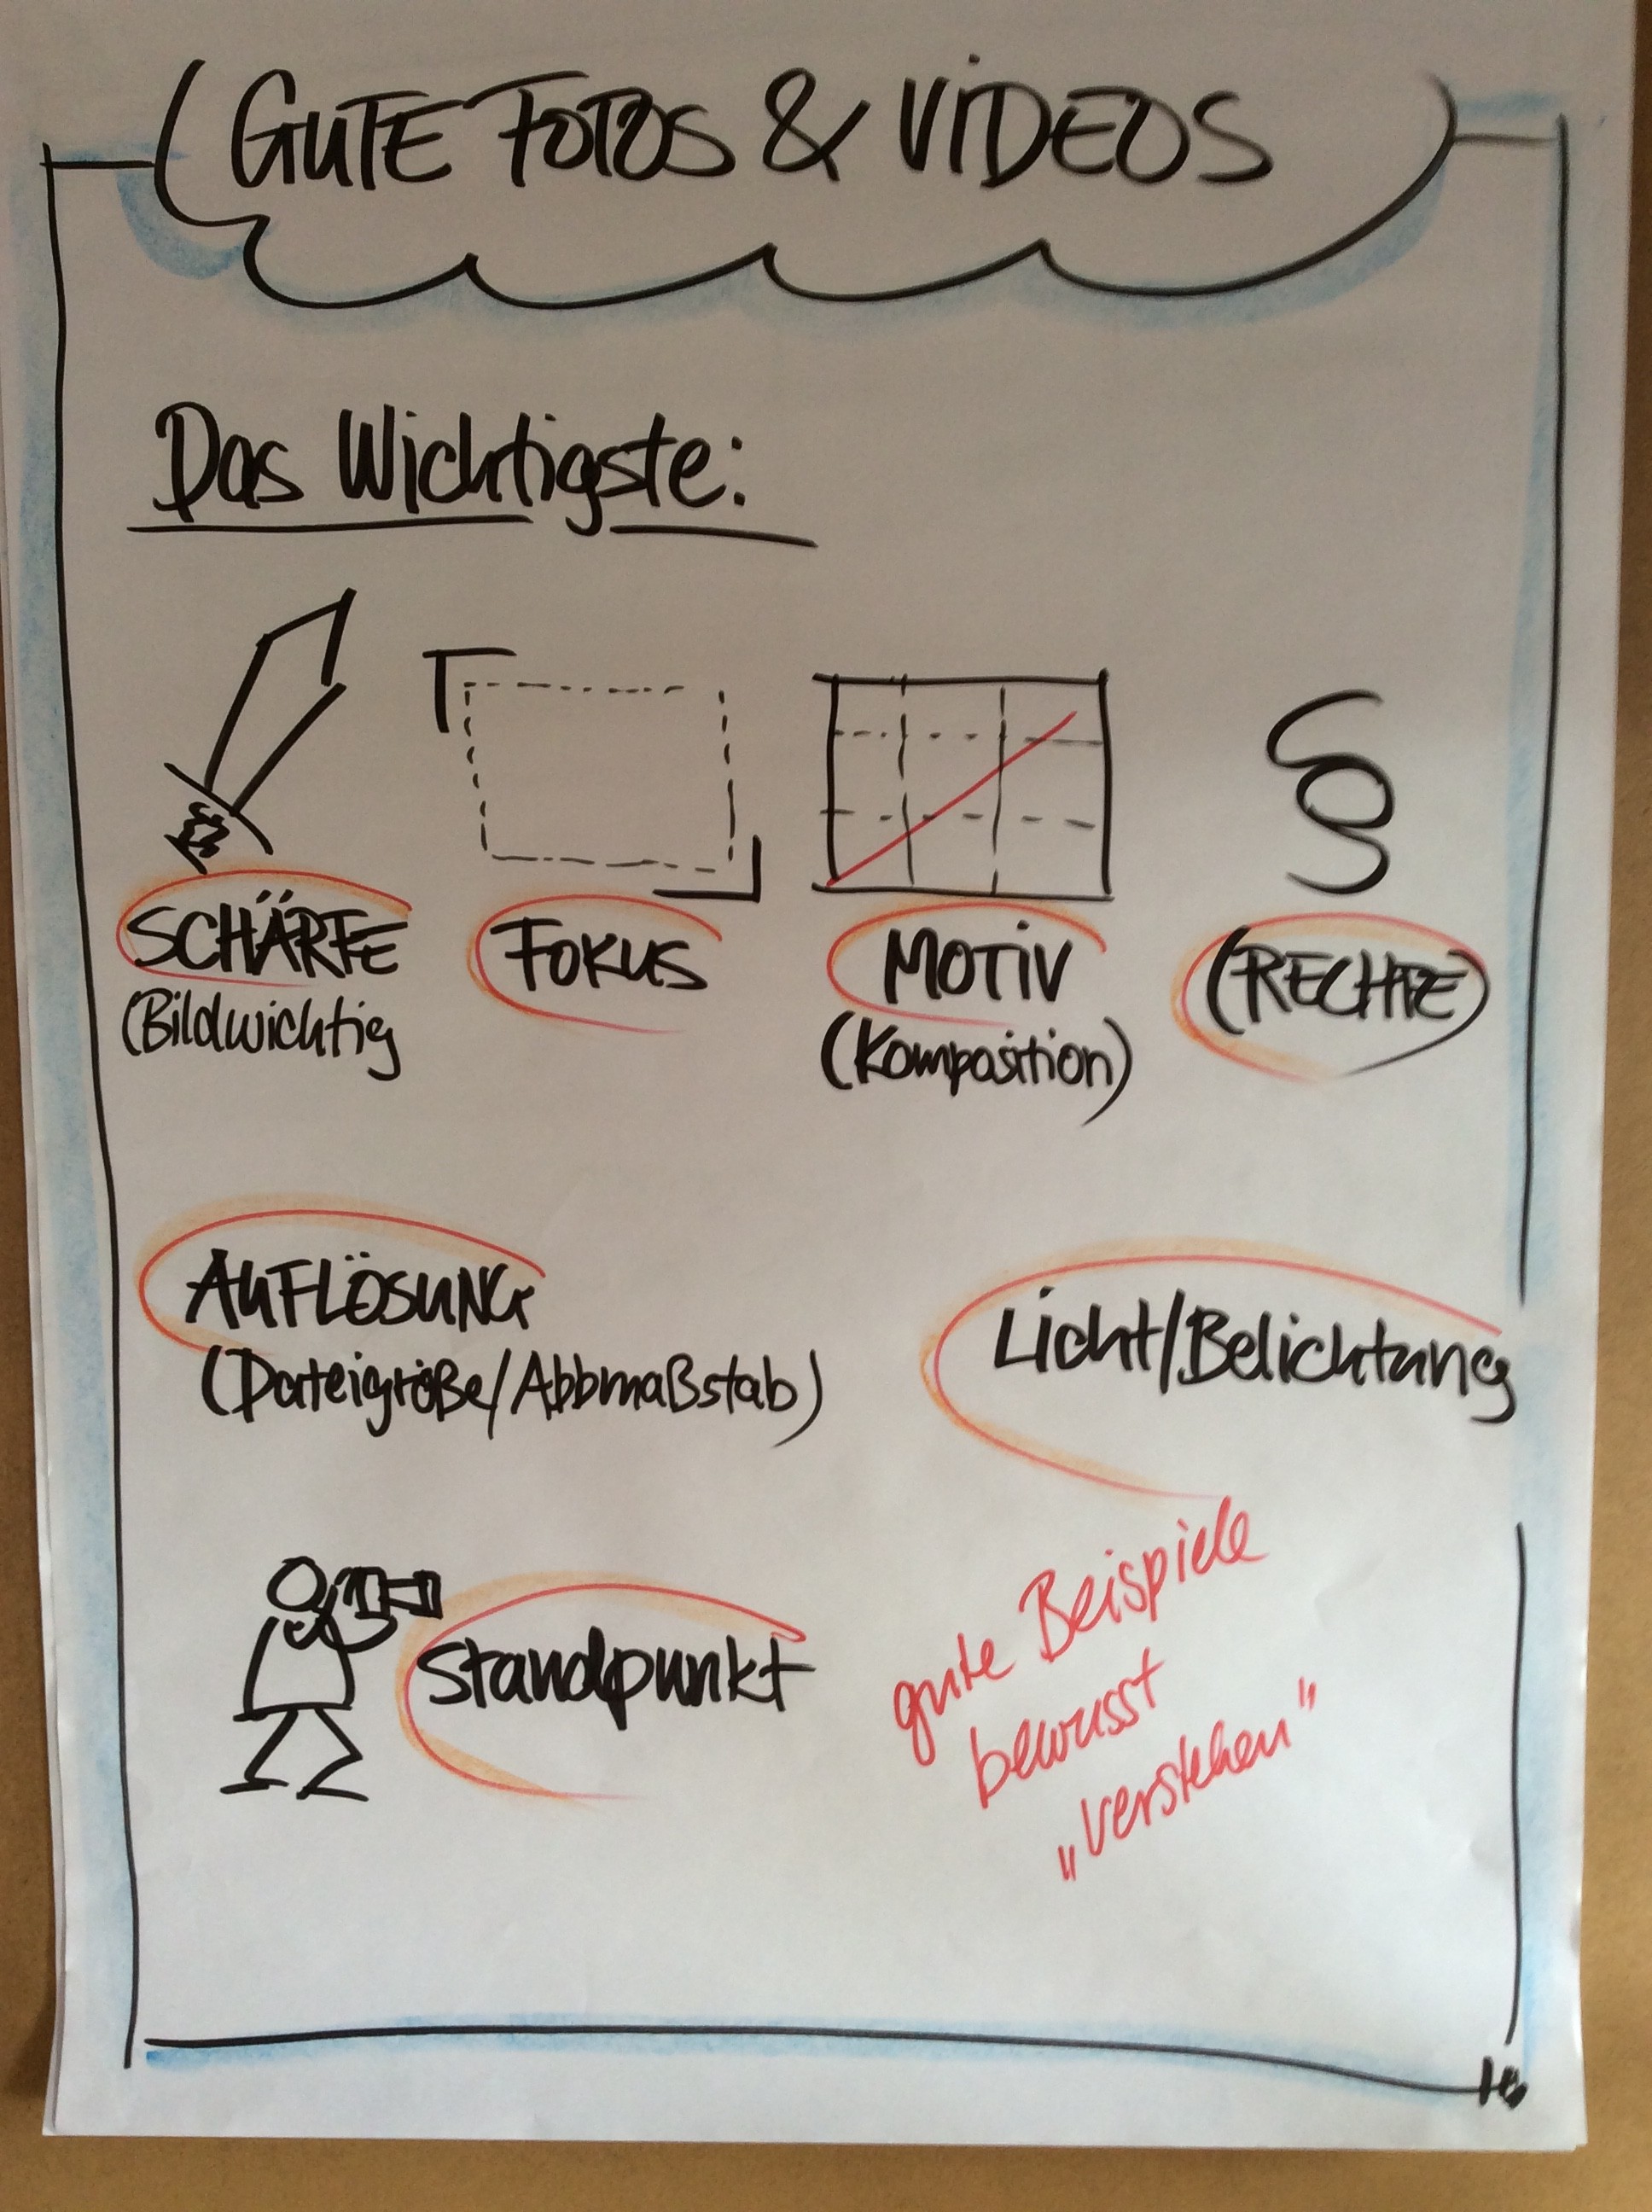 GUTE FOTOS & ViDEOS
Das Wichtigste:
SCHÄRFE
(Bildwichtig
FOKUS
MOTiV
(Komposition)
§
(RECHTE)
AUFLÖSUNG
(Dateigröße/Abbmaßstab)
Licht/Belichtung
Standpunkt
gute Beispiele
bewusst
„verstehen"